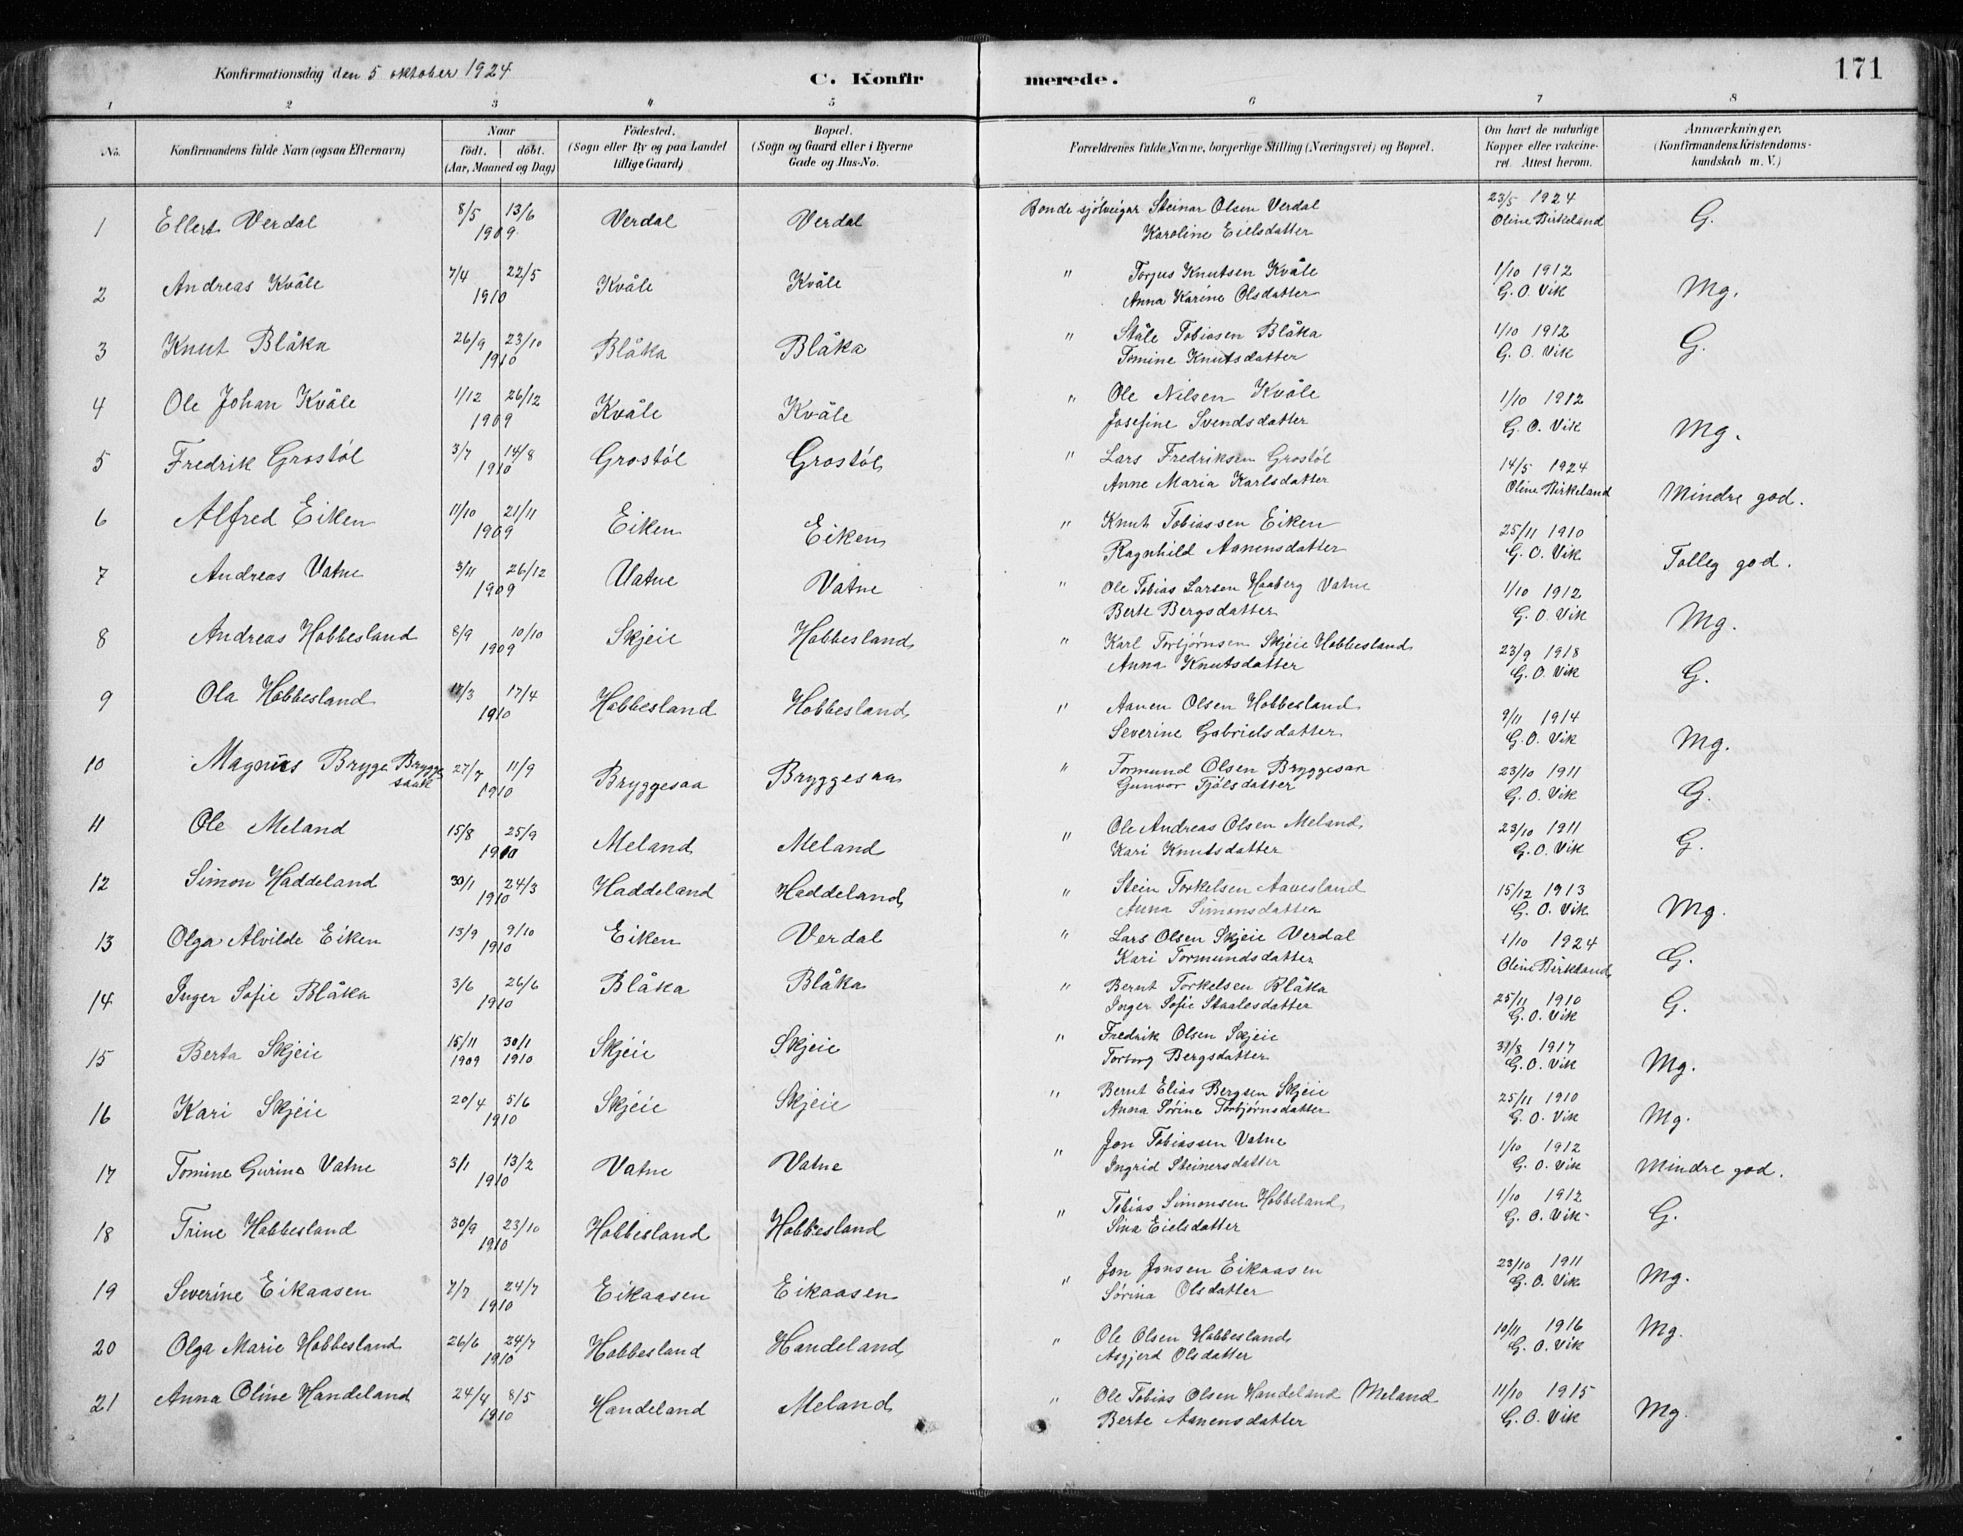 Konfirmationsdag den 5 oktober 1924
C. Konfirmerede.
171
1 2 3 4 5 6 7 8
No. Konfirmandens fulde Navn (ogsaa Efternavn) Naar født. døbt. (Aar, Maaned og Dag) Fødested. (Sogn eller By og paa Landet tillige Gaard) Bopæl. (Sogn og Gaard eller i Byerne Gade og Hus-No. Forældrenes fulde Navne, borgerlige Stilling (Næringsvei) og Bopæl. Om havt de naturlige Kopper eller vakcineret. Attest herom. Anmærkninger. (Konfirmandens Kristendomskundskab m. V.)
1 Ellert Verdal 8/5 13/6 1909 Verdal Verdal Bonde sjölveigar Steinar Olsen Verdal 23/5 1924 G.
Karoline Eielsdatter Oline Birkeland
2 Andreas Kvåle 7/4 22/5 1910 Kvåle Kvåle " Torjus Knutsen Kvåle 1/10 1912 Mg.
Anna Karine Olsdatter G. O. Vik
3 Knut Blåka 26/9 23/10 1910 Blåka Blåka " Ståle Tobiasen Blåka 1/10 1912 G.
Tomine Knutsdatter G. O. Vik
4 Ole Johan Kvåle 1/12 26/12 1909 Kvåle Kvåle " Ole Nilsen Kvåle 1/10 1912 Mg.
Josefine Svendsdatter G. O. Vik
5 Fredrik Grostöl 3/7 14/8 1910 Grostöl Grostöl " Lars Fredriksen Grostöl 14/5 1924 Mindre god.
Anne Maria Karlsdatter Oline Birkeland
6 Alfred Eiken 11/10 21/11 1909 Eiken Eiken " Knut Tobiassen Eiken 25/11 1910 Tolleg god.
Ragnhild Aanensdatter G. O. Vik
7 Andreas Vatne 3/11 26/12 1909 Vatne Vatne " Ole Tobias Larsen Haaberg Vatne 1/10 1912 Mg.
Berte Bergsdatter G. O. Vik
8 Andreas Hobbesland 8/9 10/10 1909 Skjeie Hobbesland " Karl Torbjørnsen Skjeie Hobbesland 23/9 1918 G.
Anna Knutsdatter G. O. Vik
9 Ola Hobbesland 17/4 1910 Hobbesland Hobbesland " Aanen Olsen Hobbesland 9/11 1914 Mg.
Severine Gabrielsdatter G. O. Vik
10 Magnus Bryge Bryggesaak 27/7 11/9 1910 Bryggesaa Bryggesaa " Tormund Olsen Bryggesaa 23/10 1911 G.
Gunvor Tjölsdatter G. O. Vik
11 Ole Meland 15/8 25/9 1910 Meland Meland " Ole Andreas Olsen Meland 23/10 1911 G.
Kari Knutsdatter G. O. Vik
12 Simon Haddeland 30/1 24/3 1910 Haddeland Haddeland " Stein Torkelsen Aavesland 15/12 1913 Mg.
Anna Simonsdatter G. O. Vik
13 Olga Alvilde Eiken 13/9 9/10 1910 Eiken Verdal " Lars Olsen Skjeie Verdal 1/10 1924 G.
Kari Tormundsdatter Oline Birkeland
14 Inger Sofie Blåka 3/6 26/6 1910 Blåka Blåka " Bernt Torkelsen Blåka 25/11 1910 G.
Inger Sofie Staalesdatter G. O. Vik
15 Berta Skjeie 15/11 1909 30/1 1910 Skjeie Skjeie " Fredrik Olsen Skjeie 31/8 1917 Mg.
Torborg Bergsdatter G. O. Vik
16 Kari Skjeie 20/4 5/6 1910 Skjeie Skjeie " Bernt Elias Bergsen Skjeie 25/11 1910 Mg.
Anna Sörine Torbjørnsdatter G. O. Vik
17 Tomine Gurine Vatne 3/1 13/2 1910 Vatne Vatne " Jon Tobiassen Vatne 1/10 1912 Mindre god.
Ingrid Steinersdatter G. O. Vik
18 Trine Hobbesland 30/9 23/10 1910 Hobbesland Hobbesland " Tobias Simonsen Hobbeland 1/10 1912 G.
Sina Eielsdatter G. O. Vik
19 Severine Eikaasen 7/7 24/7 1910 Eikaasen Eikaasen " Jon Jonsen Eikaasen 23/10 1911 Mg.
Sörina Olsdatter G. O. Vik
20 Olga Marie Hobbesland 26/6 24/7 1910 Hobbesland Handeland " Ole Olsen Hobbesland 10/11 1916 Mg.
Asgjerd Olsdatter G. O. Vik
21 Anna Oline Handeland 24/4 8/5 1910 Handeland Meland " Ole Tobias Olsen Handeland (Meland 11/10 1915 Mg.
Berte Aanensdatter G. O. Vik